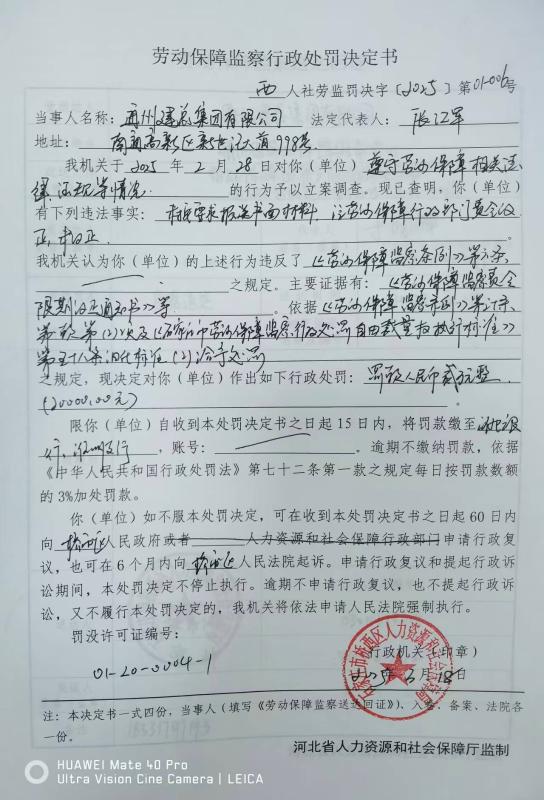 劳动保障监察行政处罚决定书
西 人社劳监罚决字〔2025〕第01-006号
当事人名称: 州建总集团有限公司 法定代表人: 张江军
地址: 南高新区新世纪大道998号
我机关于 2025 年 2 月 28 日对你(单位) 遵守劳动保障相关法
律、法规等情况 的行为予以立案调查。现已查明,你(单位)
有下列违法事实: 未按要求报送书面材料,经劳动保障行政部门责令改
正,未改正。
我机关认为你(单位)的上述行为违反了《劳动保障监察条例》第
之规定。主要证据有: 《劳动保障监察责令
限期改正通知书》等 。依据《劳动保障监察条例》第三十条、
第一款第(2)以及《石家庄市劳动保障监察行政处罚自由裁量 执行标准》
第五十八条 标准(2)给予处罚
之规定,现决定对你(单位)作出如下行政处罚: 罚款人民币贰万元整
(20000.00元)
限你(单位)自收到本处罚决定书之日起15日内,将罚款缴至
行、 支行 ,账号: 。逾期不缴纳罚款,依据
《中华人民共和国行政处罚法》第七十二条第一款之规定每日按罚款数额
的3%加处罚款。
你(单位)如不服本处罚决定,可在收到本处罚决定书之日起60日内
向 桥西区 人民政府或者 人力资源和社会保障行政部门申请行政复
议,也可在6个月内向 桥西区 人民法院起诉。申请行政复议和提起行政诉
讼期间,本处罚决定不停止执行。逾期不申请行政复议,也不提起行政诉
讼,又不履行本处罚决定的,我机关将依法申请人民法院强制执行。
罚没许可证编号:
行政机关(印章)
01-20-0004-1
2025年 月18日
石家庄市桥西区人力资源和社会保障局
注:本决定书一式四份,当事人(填写《劳动保障监察送达回证》)、入卷、备案、法院各
一份。
河北省人力资源和社会保障厅监制
HUAWEI Mate 40 Pro
Ultra Vision Cine Camera | LEICA